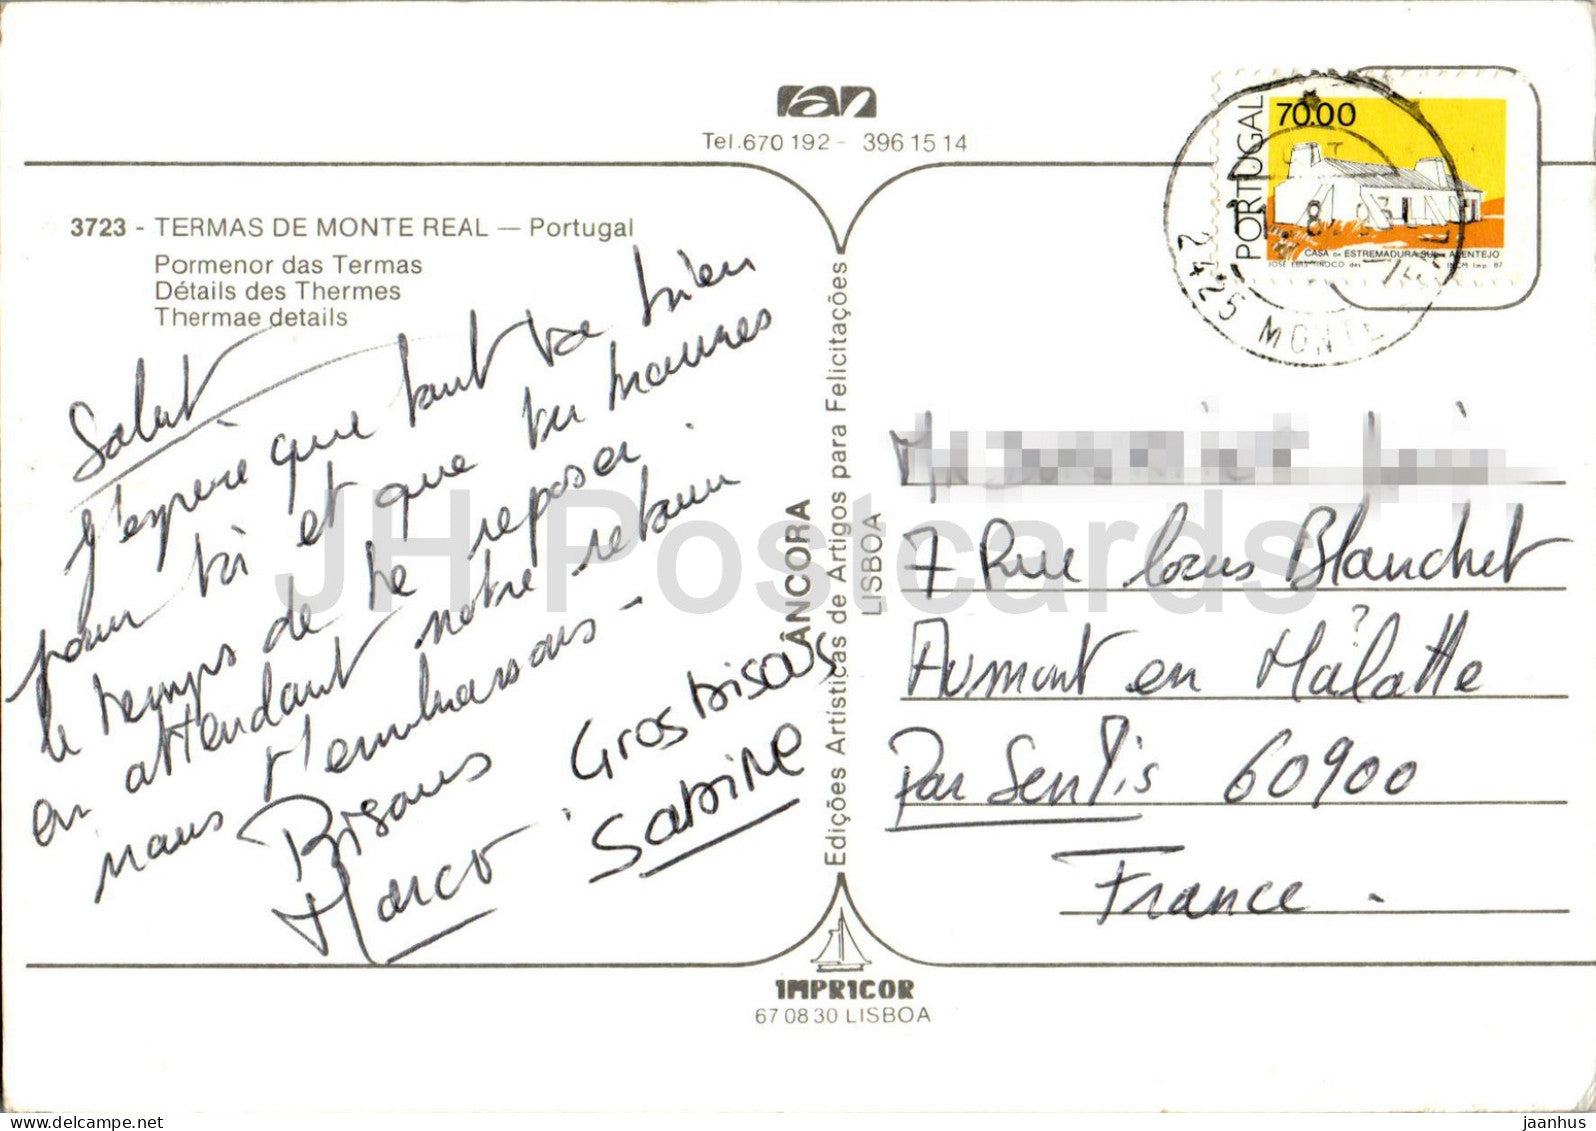 ran
Tel.670 192 - 396 15 14
3723 - TERMAS DE MONTE REAL — Portugal
Pormenor das Termas
Détails des Thermes
Thermae details
Salut
J'espère que tout va bien
pour toi et que tu trouves
le temps de te reposer.
en attendant notre retour
nous t'embrassons -
Bisous
Marco
Gros bisous
Sabine
ÂNCORA
Edições Artísticas de Artigos para Felicitações
LISBOA
PORTUGAL
70.00
CASA da ESTREMADURA SUL e ALENTEJO
JOSÉ LUIS TINOCO des. INCM Imp. 87
2425 MONTE
7 Rue Louis Blanchet
Aumont en Halatte
?
Par Senlis 60900
France.
IMPRICOR
67 08 30 LISBOA
JH Postcards
delcampe.net
jaanhus